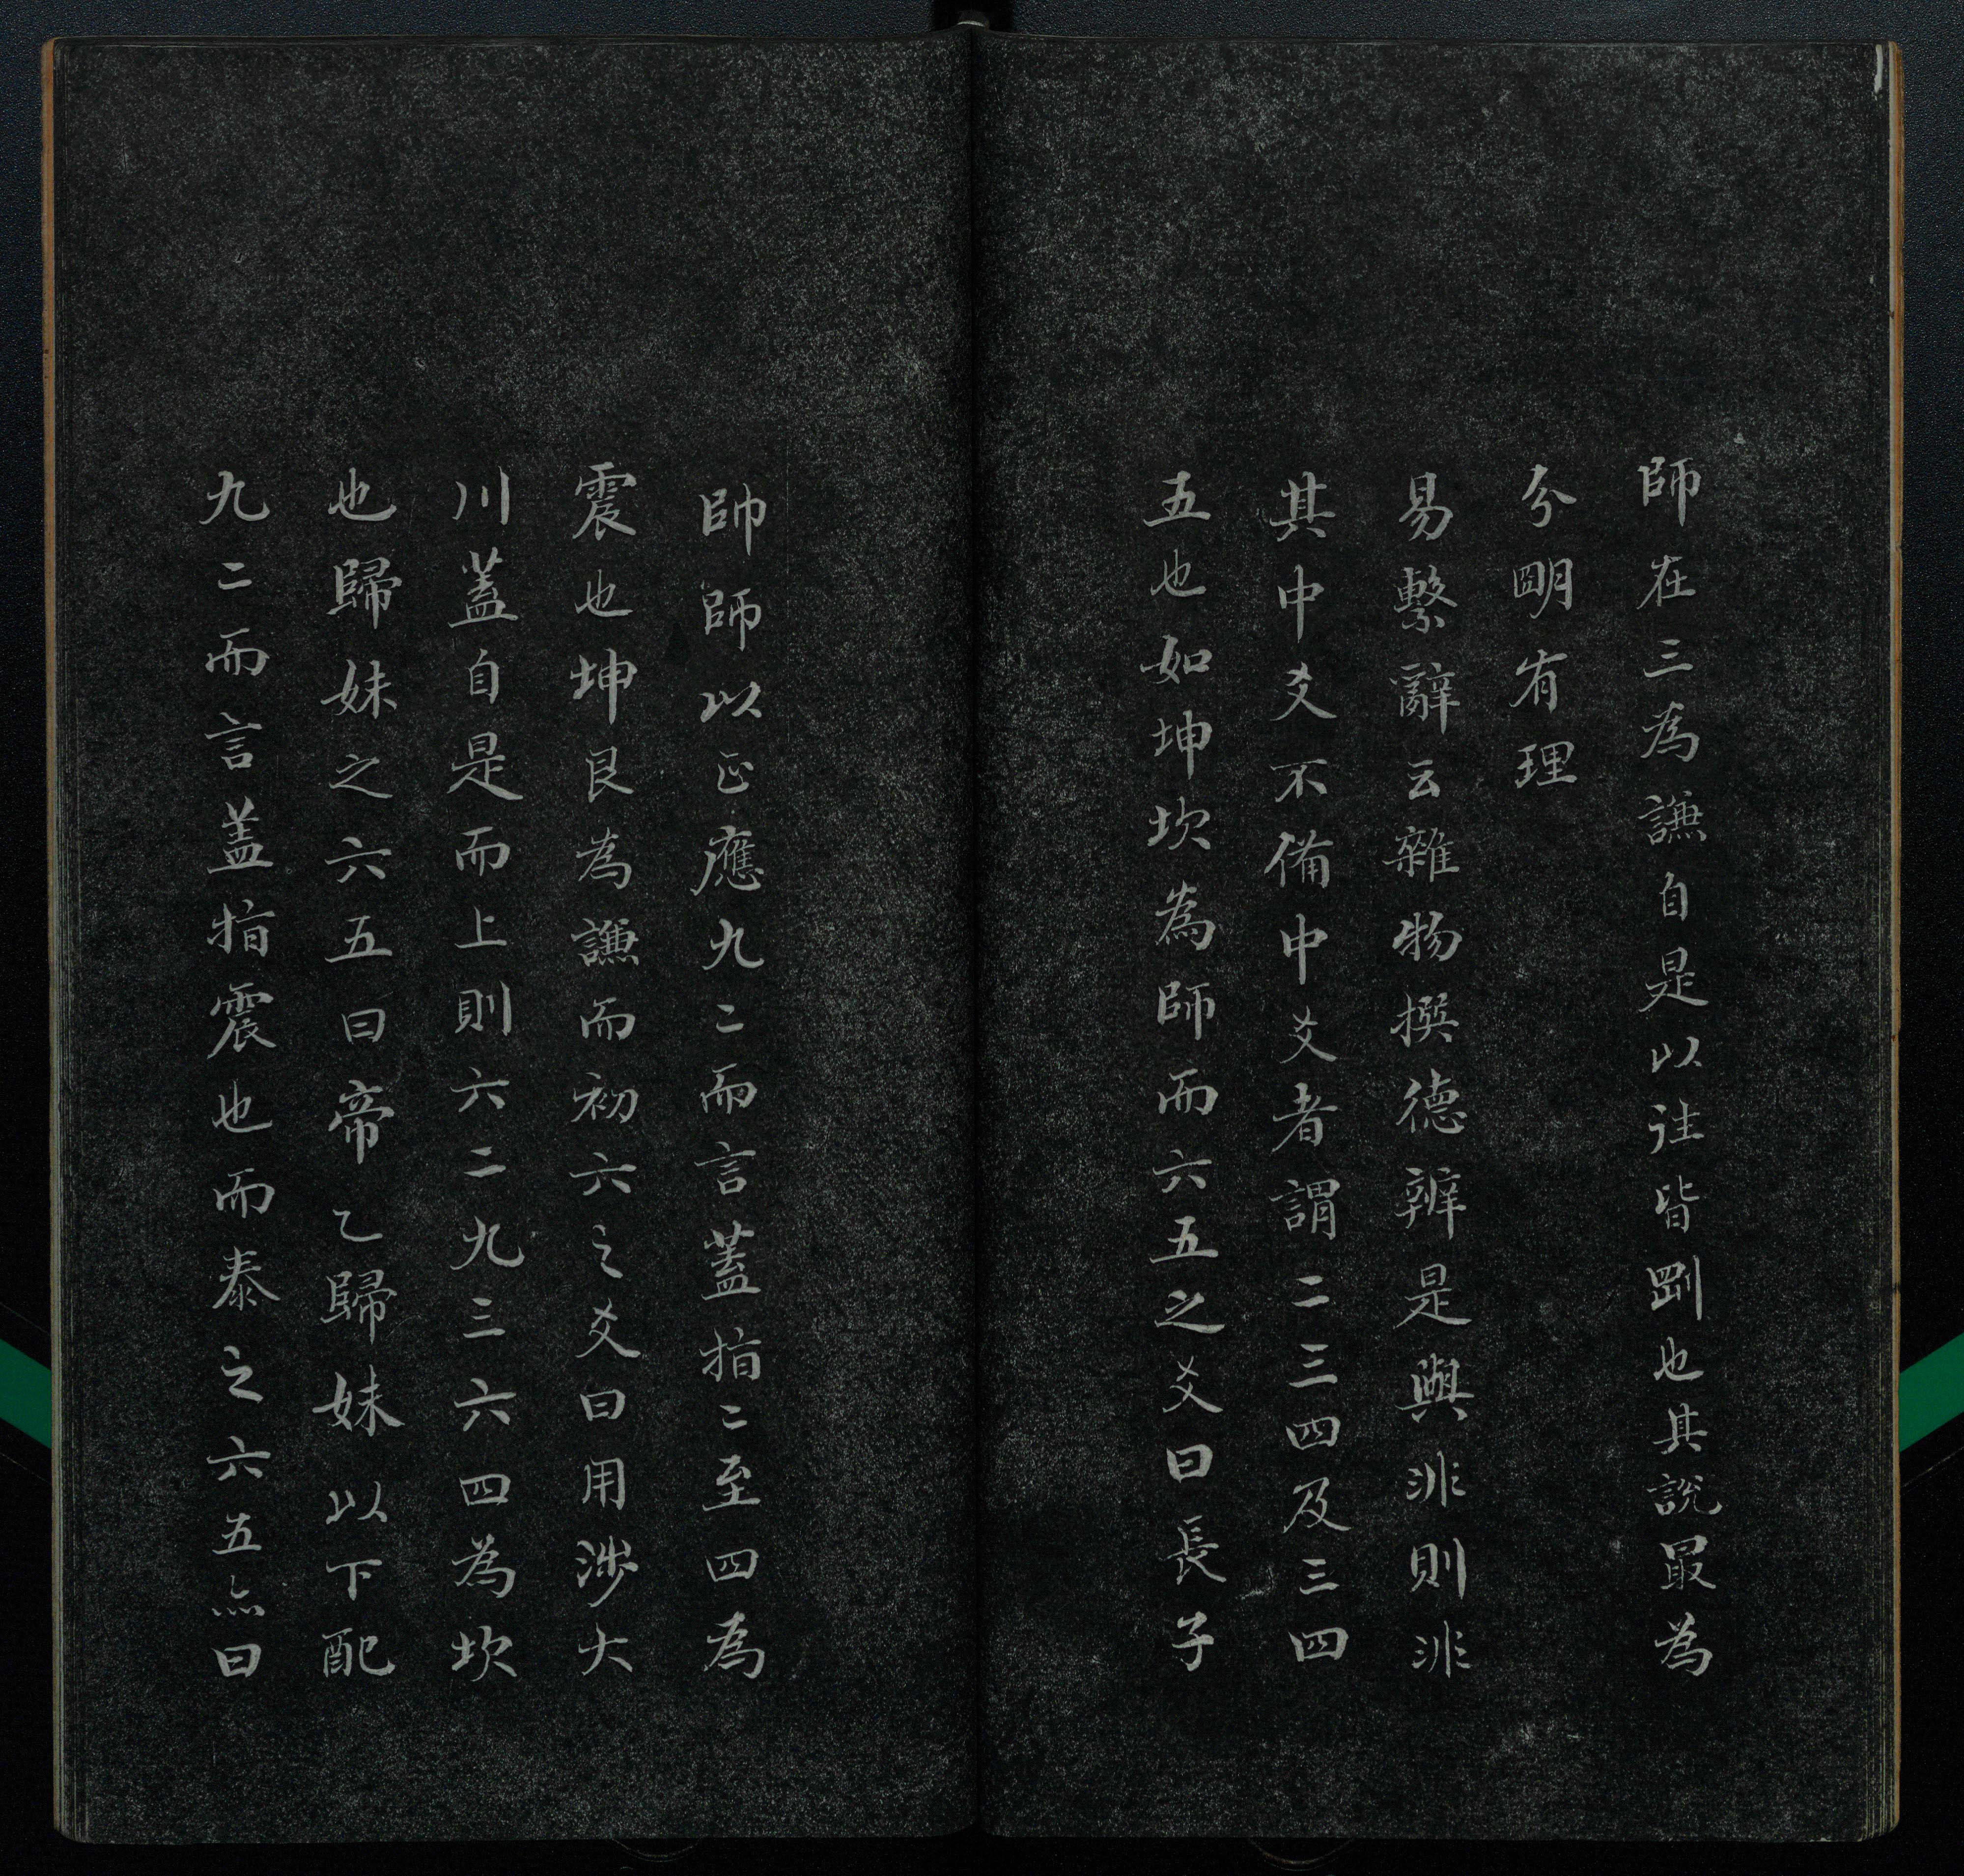 師在三為謙自是以往皆剛也其說最為
分明有理
易繫辭云雜物撰德辨是與非則非
其中爻不備中爻者謂二三四及三四
五也如坤坎為師而六五之爻曰長子
帥師以正應九二而言蓋指二至四為
震也坤艮為謙而初六之爻曰用涉大
川蓋自是而上則六二九三六四為坎
也歸妹之六五曰帝乙歸妹以下配
九二而言蓋指震也而泰之六五亦曰